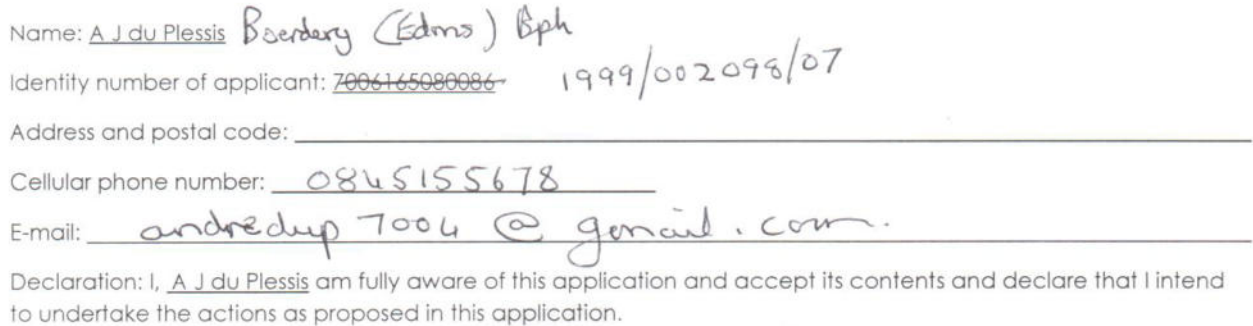 Name: A J du Plessis Boerdery (Edms) Bpk
Identity number of applicant: 7006165080086 1999/002098/07
Address and postal code:
Cellular phone number: 0845155678
E-mail: andredup7004@gmail.com.
Declaration: I, A J du Plessis am fully aware of this application and accept its contents and declare that I intend
to undertake the actions as proposed in this application.